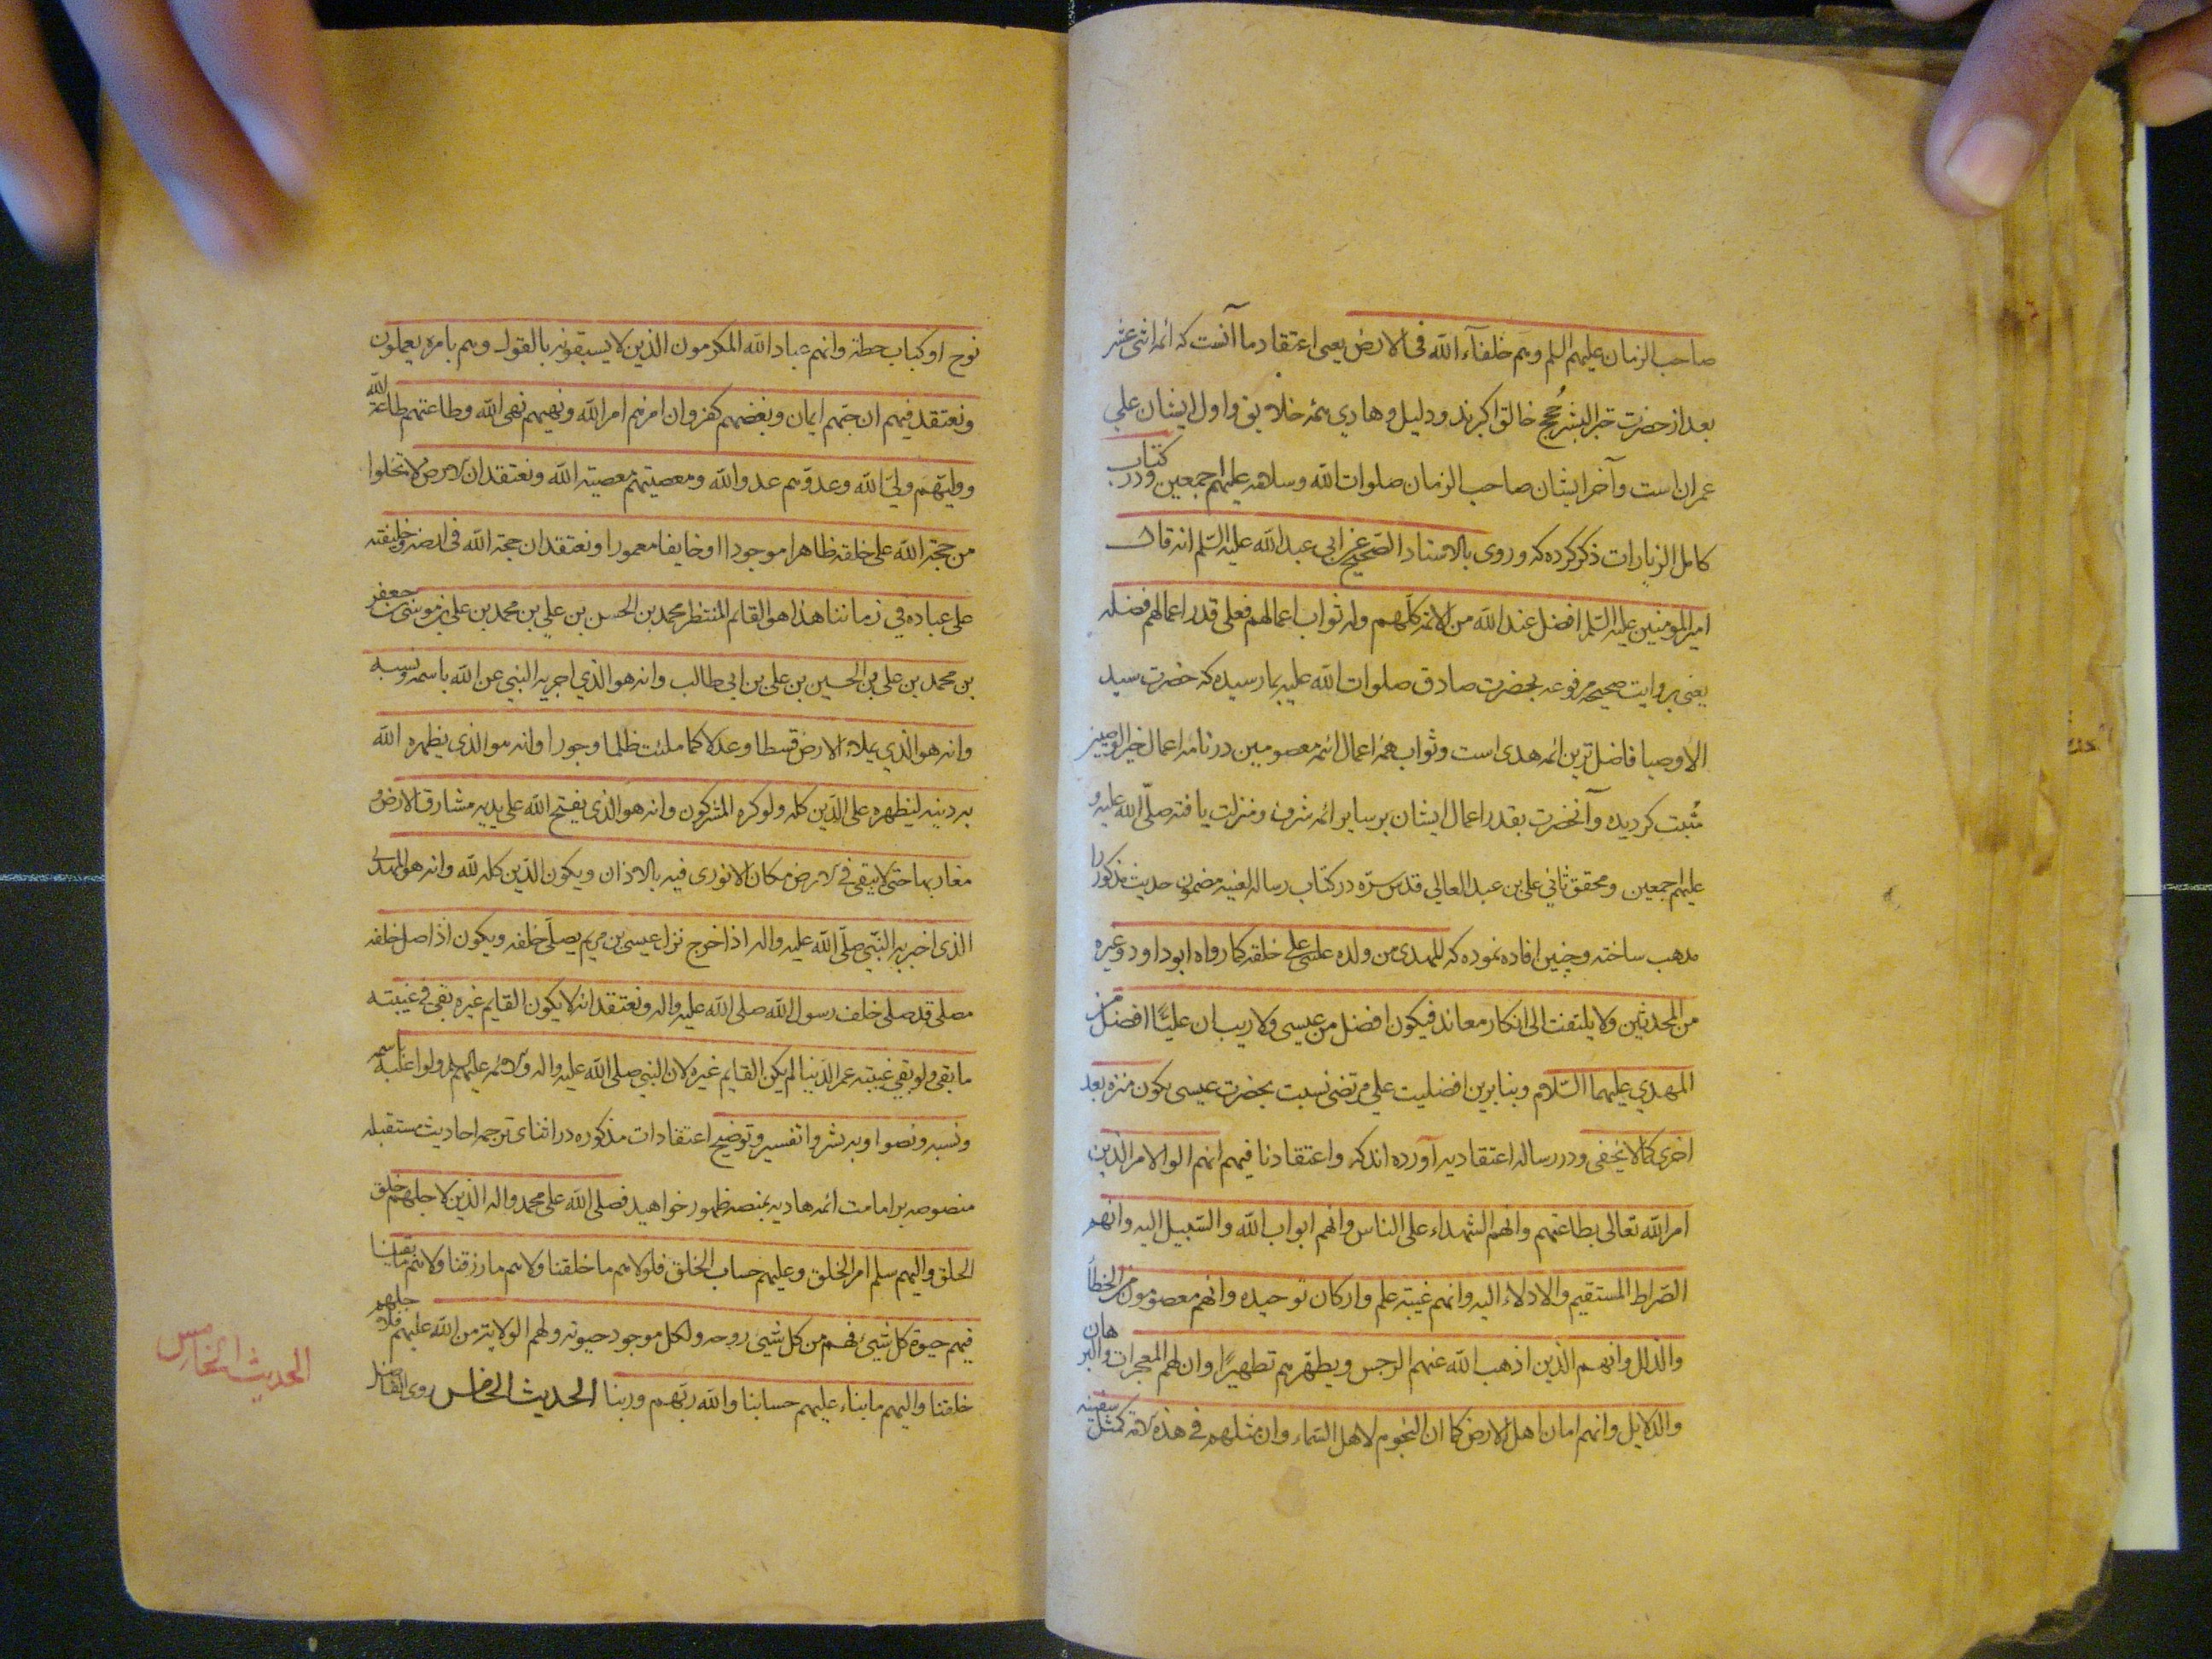 صاحب الزمان علیهم السلم وهم خلفآء الله فی الارض یعنی اعتقاد ما آنست که ائمه اثنی عشر
بعد از حضرت خیر البشر حُجج خالق اکبرند و دلیل و هادی همه خلایق و اول ایشان علی
عمران است و آخر ایشان صاحب الزمان صلوات الله وسلامه علیهم اجمعین و در کتاب
کامل الزیارات ذکر کرده که وروی بالاسناد الصحیح عن ابی عبد الله علیه السلم انه قال
امیر المومنین علیه السلم افضل عند الله من الائمه کلهم وله ثواب اعمالهم فعلی قدر اعمالهم فضله
یعنی بروایت صحیحه مرفوعه بحضرت صادق صلوات الله علیه بما رسیده که حضرت سید
الاوصیا فاضل ترین ائمه هدی است و ثواب همه اعمال ائمه معصومین در نامه اعمال خیر الوصیین
مُثبت گردیده و آنحضرت بقدر اعمال ایشان بر سایر ائمه شرف و منزلت یافته صلّی الله علیه و
علیهم اجمعین و محقق ثانی علی بن عبد العالی قدس سره در کتاب رساله لغنیه مضمون حدیث مذکور را
مذهب ساخته و چنین افاده نموده که للمهدی من ولده علی عیسی خلقه کما رواه ابو داود وغیره
من المحدثین ولا یلتفت الی انکار معاند فیکون افضل من عیسی ولا ریب ان علیّا افضل من
المهدی علیهما السلام وبنابرین افضلیت علی مرتضی نسبت بحضرت عیسی یکون منزه بعد
اخری کما لا یخفی ودر رساله اعتقادیه آورده اند که واعتقادنا فیهم انهم الوا الامر الذین
امر الله تعالی بطاعتهم وانهم الشهداء علی الناس وانهم ابواب الله والسبیل الیه وانهم
الصراط المستقیم والادلاء الیه وانهم عیبة علم وارکان توحیده وانهم معصومون من الخطأ
والذلل وانهم الذین اذهب الله عنهم الرجس ویطهرهم تطهیرًا وان لهم المعجزات والبرهان
والدلایل وانهم امان اهل الارض کما ان النجوم لاهل السماء وان مثلهم فی هذه الامة کمثل سفینه
نوح او کباب حطة وانهم عباد الله المکرمون الذین لا یسبقونه بالقول وهم بامره یعملون
ونعتقد فیهم ان حبهم ایمان وبغضهم کفر وان امرهم امر الله ونهیهم نهی الله وطاعتهم طاعة الله
وولیهم ولی الله وعدوهم عدو الله ومعصیتهم معصیة الله ونعتقد ان الارض لا تخلوا
من حجة الله علی خلقه ظاهرا موجودا او خایفا معمورا ونعتقد ان حجة الله فی ارضه وخلیفته
علی عباده فی زماننا هذا هو القایم المنتظر محمد بن الحسن بن علی بن محمد بن علی بن موسی بن جعفر
بن محمد بن علی بن الحسین بن علی بن ابی طالب وانه هو الذی اخبر به النبی عن الله باسمه ونسبه
وانه هو الذی یملاء الارض قسطا وعدلا کما ملئت ظلما وجورا وانه هو الذی یظهره الله
به دینه لیظهره علی الدین کله ولو کره المشرکون وانه هو الذی یفتح الله علی یدیه مشارق الارض و
مغاربها حتی لا یبقی فی الارض مکان الا نودی فیه بالاذان ویکون الدین کله لله وانه هو المهدی
الذی اخبر به النبی صلّی الله علیه واله اذا خرج نزل عیسی بن مریم یصلی خلفه ویکون اذا صل خلفه
مصلی قد صلی خلف رسول الله صلی الله علیه واله ونعتقد انه لا یکون القایم غیره بقی فی غیبته
ما بقی ولو بقی غیبته عمر الدنیا لم یکن القایم غیره لان النبی صلی الله علیه واله والائمه علیهم السلم دلوا علیه باسمه
ونسبه ونصوا وبه بشروا تفسیر و توضیح اعتقادات مذکوره در اثنای ترجمه احادیث مستقبله
منصوصه بر امامت ائمه هادیه بمنصه ظهور خواهید فصلی الله علی محمد واله الذین لاجلهم خلق
الخلق والیهم سلم امر الخلق وعلیهم حساب الخلق فلولاهم ما خلقنا ولاهم ما رزقنا ولاهم ما بقینا
فبهم حیوة کل شیئ فهم من کل شیئ روحه ولکل موجود حیوته ولهم الولایة من الله علیهم فلاجلهم
خلقنا والیهم مابناء علیهم حسابنا والله ربهم وربنا الحدیث الخامس روی الفاضل
الحدیث الخامس